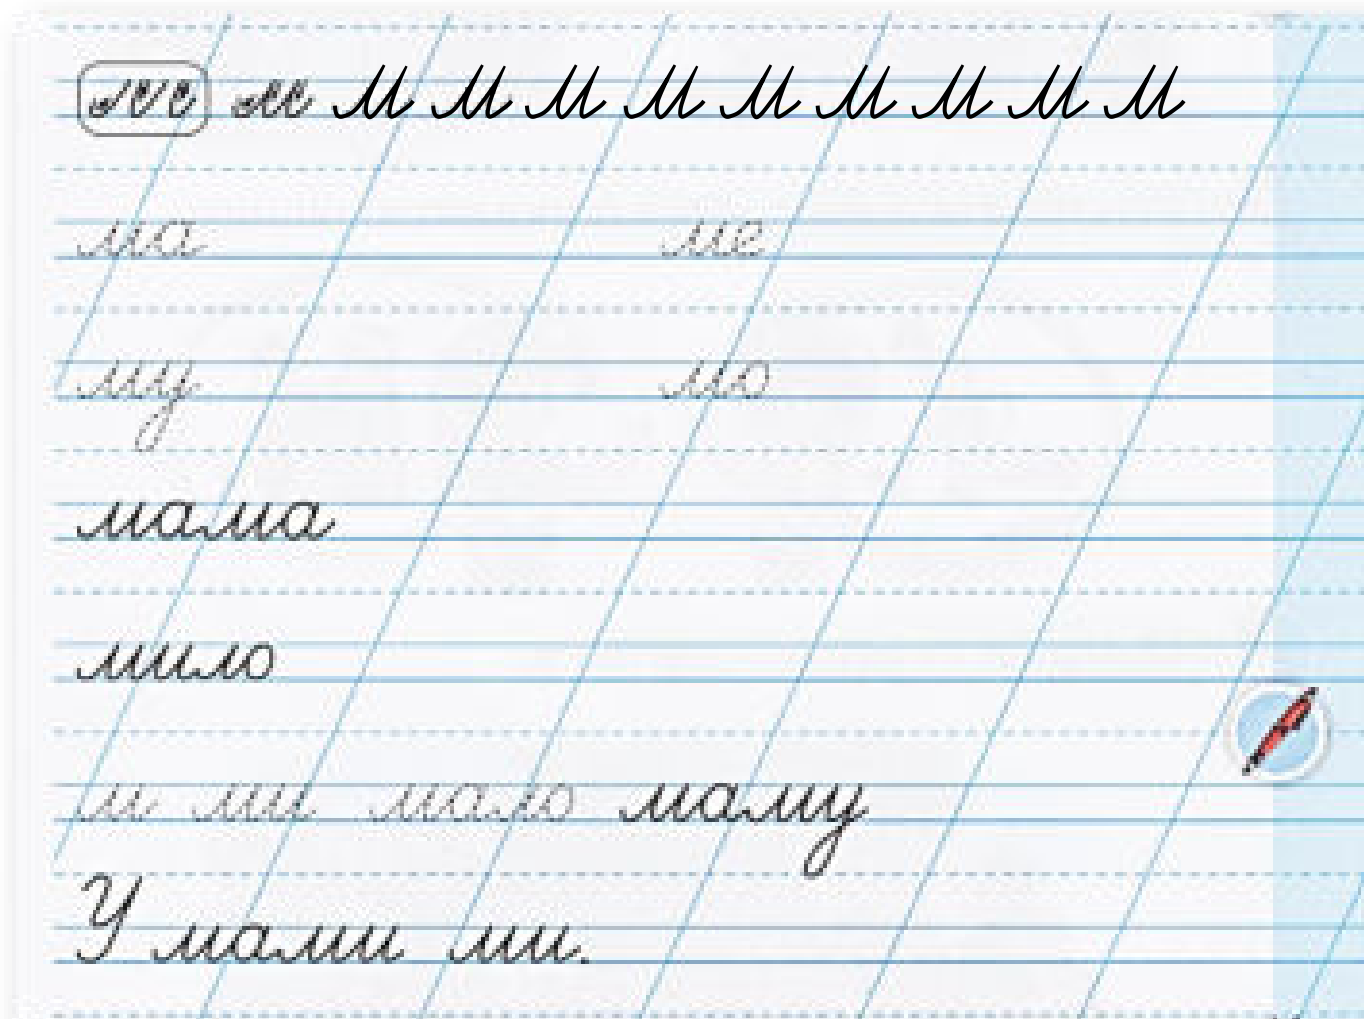 м м м м м м м м м
ма ме
му мо
мама
мило
м ми мало маму
У мами ми.